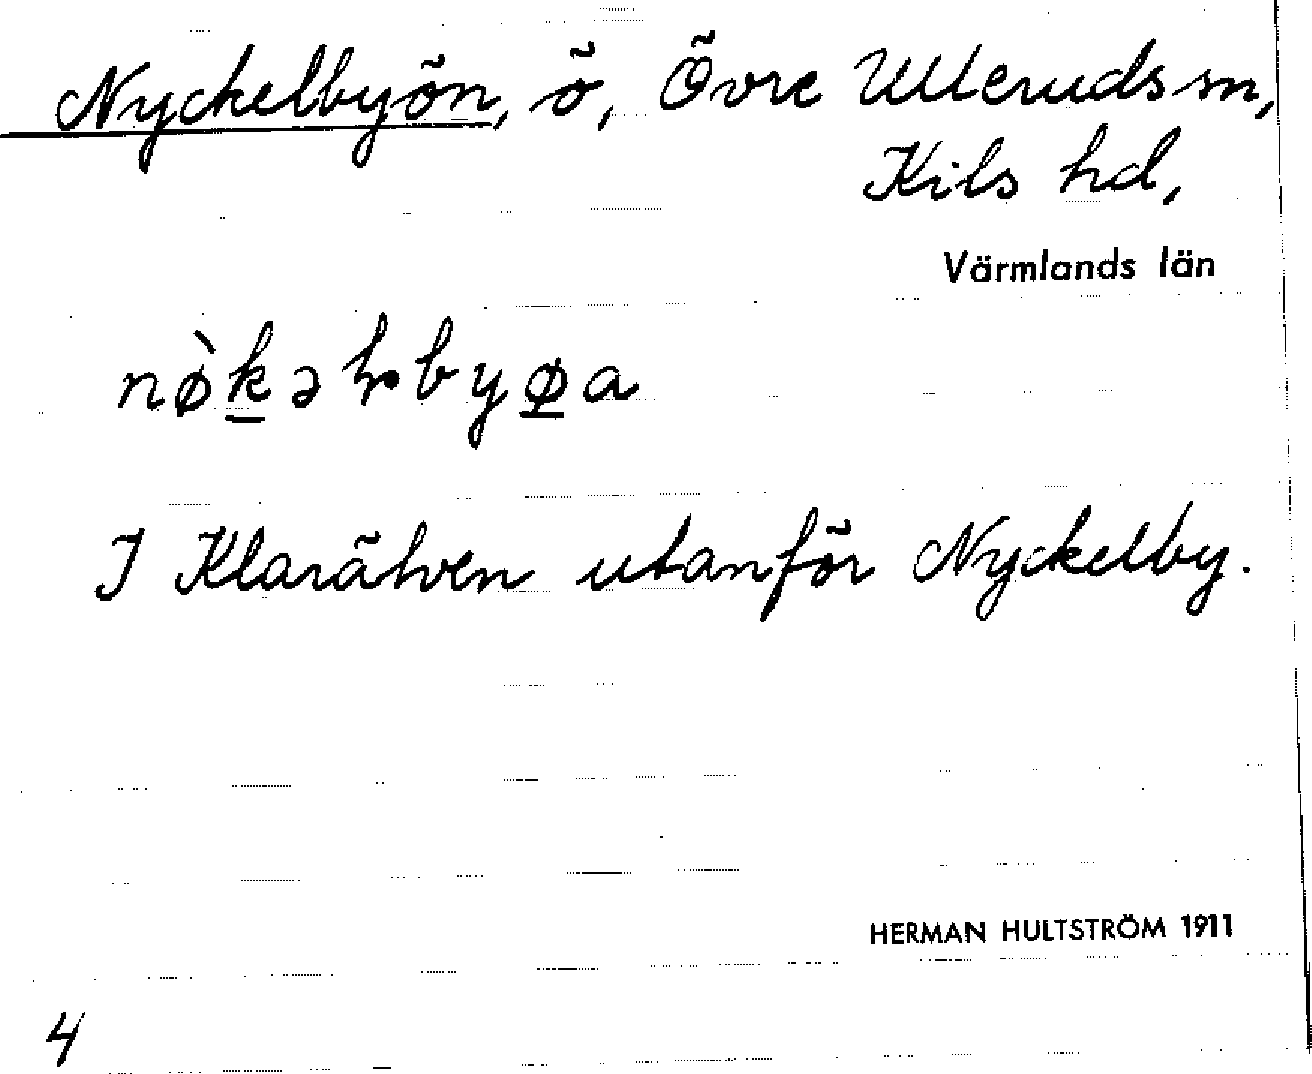 Nyckelbyön, ö, Övre Ulleruds sn,
Kils hd,
Värmlands län
nø̀k̲əɫbyø̲a
I Klarälven utanför Nyckelby.
HERMAN HULTSTRÖM 1911
4